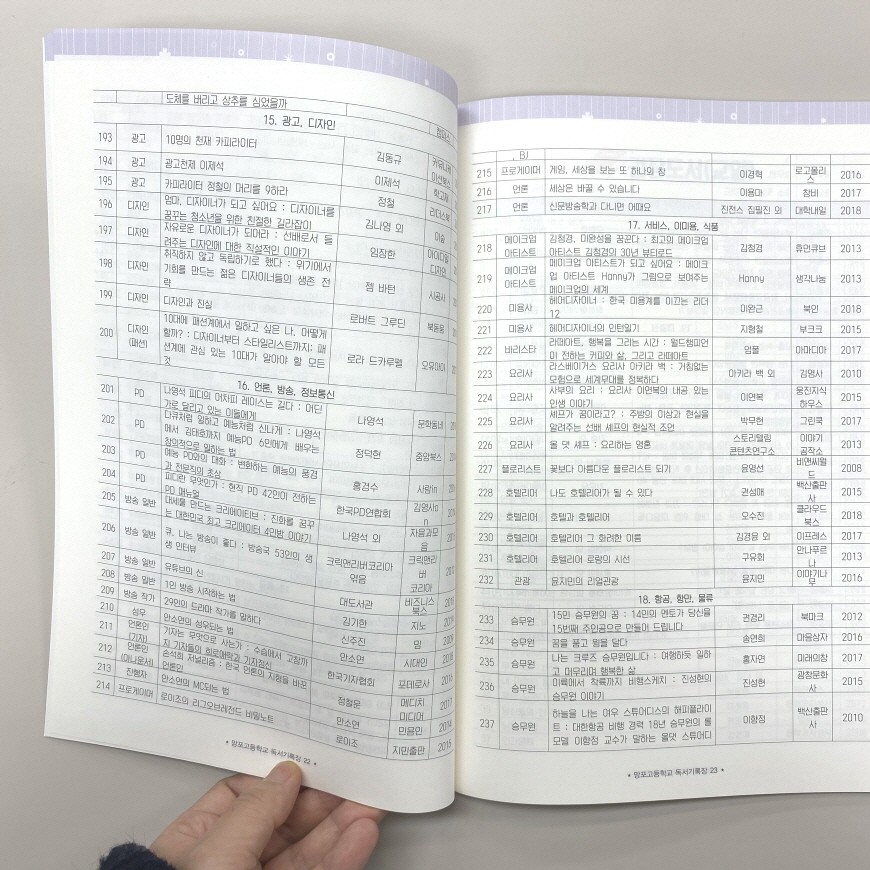 도체를 버리고 상추를 심었을까
15. 광고, 디자인
193 광고 10명의 천재 카피라이터 김동규
194 광고 광고천재 이제석 이제석
195 광고 카피라이터 정철의 머리를 9하라 정철
196 디자인 엄마, 디자이너가 되고 싶어요 : 디자이너를 꿈꾸는 청소년을 위한 친절한 길라잡이 김나영 외
197 디자인 자유로운 디자이너가 되어라 : 선배로서 들려주는 디자인에 대한 직설적인 이야기 임장한
198 디자인 취직하지 않고 독립하기로 했다 : 위기에서 기회를 만드는 젊은 디자이너들의 생존 전략 젬 바턴 시공사
199 디자인 디자인과 진실 로버트 그루딘 북돋움
200 디자인 (패션) 10대에 패션계에서 일하고 싶은 나, 어떻게 할까? : 디자이너부터 스타일리스트까지; 패션계에 관심 있는 10대가 알아야 할 모든 것 로라 드카루펠 오유아이
16. 언론, 방송, 정보통신
201 PD 나영석 피디의 어차피 레이스는 길다 : 어딘가로 달리고 있는 이들에게 나영석 문학동네
202 PD 다큐처럼 일하고 예능처럼 신나게 : 나영석에서 김태호까지 예능PD 6인에게 배우는 창의적으로 일하는 법 정덕현 중앙북스
203 PD 예능 PD와의 대화 : 변화하는 예능의 풍경과 전문직의 초상 홍경수 사람in
204 PD 피디란 무엇인가 : 현직 PD 42인이 전하는 PD 매뉴얼 한국PD연합회 김영사on
205 방송 일반 대세를 만드는 크리에이티브 : 진화를 꿈꾸는 대한민국 최고 크리에이터 4인방 이야기 나영석 외 자음과모음
206 방송 일반 큐, 나는 방송이 좋다 : 방송국 53인의 생생 인터뷰 크릭앤리버코리아 엮음 크릭앤리버 코리아
207 방송 일반 유튜브의 신 대도서관 비즈니스북스
208 방송 일반 1인 방송 시작하는 법 김기한 지노
209 방송 작가 29인의 드라마 작가를 말하다 신주진 밈
210 성우 안소연의 성우되는 법 안소연 시대인
211 언론인 (기자) 기자는 무엇으로 사는가 : 수습에서 고참까지 기자들의 희로애락과 기자정신 한국기자협회 포데로사
212 언론인 (아나운서) 손석희 저널리즘 : 한국 언론의 지형을 바꾼 언론인 정철운 메디치미디어
213 진행자 안소연의 MC되는 법 안소연
214 프로게이머 로이조의 리그오브레전드 비밀노트 로이조 지민출판
* 망포고등학교 독서기록장 22 *
, B)
215 프로게이머 게임, 세상을 보는 또 하나의 창 이경혁 로고폴리스 2016
216 언론 세상은 바꿀 수 있습니다 이용마 창비 2017
217 언론 신문방송학과 다니면 어때요 진전스 집필진 외 대학내일 2018
17. 서비스, 이미용, 식품
218 메이크업 아티스트 김청경, 미완성을 꿈꾼다 : 최고의 메이크업 아티스트 김청경의 30년 뷰티로드 김청경 휴먼큐브 2013
219 메이크업 아티스트 메이크업 아티스트가 되고 싶어요 : 메이크업 아티스트 Hanny가 그림으로 보여주는 메이크업의 세계 Hanny 생각나눔 2013
220 미용사 헤어디자이너 : 한국 미용계를 이끄는 리더 12 이완근 북인 2018
221 미용사 헤어디자이너의 인턴일기 지형철 부크크 2015
222 바리스타 라떼아트, 행복을 그리는 시간 : 월드챔피언이 전하는 커피와 삶, 그리고 라떼아트 엄폴 아마디아 2017
223 요리사 라스베이거스 요리사 아키라 백 : 거침없는 모험으로 세계무대를 정복하다 아키라 백 외 김영사 2010
224 요리사 사부의 요리 : 요리사 이연복의 내공 있는 인생 이야기 이연복 웅진지식하우스 2015
225 요리사 셰프가 꿈이라고? : 주방의 이상과 현실을 알려주는 선배 셰프의 현실적 조언 박무현 그린쿡 2017
226 요리사 올 댓 셰프 : 요리하는 영혼 스토리텔링 콘텐츠연구소 이야기공작소 2013
227 플로리스트 꽃보다 아름다운 플로리스트 되기 윤영선 비앤씨월드 2008
228 호텔리어 나도 호텔리어가 될 수 있다 권성애 백산출판사 2015
229 호텔리어 호텔과 호텔리어 오수진 클라우드북스 2018
230 호텔리어 호텔리어 그 화려한 이름 김경윤 외 이프레스 2017
231 호텔리어 호텔리어 로랑의 시선 구유회 안나푸르나 2013
232 관광 윤지민의 리얼관광 윤지민 이야기나무 2016
18. 항공, 항만, 물류
233 승무원 15인 승무원의 꿈 : 14인의 멘토가 당신을 15번째 주인공으로 만들어 드립니다 권경리 북마크 2012
234 승무원 꿈을 품고 뭠을 달다 송연희 마음상자 2016
235 승무원 나는 크루즈 승무원입니다 : 여행하듯 일하고 머무르며 행복한 삶 홍자연 미래의창 2017
236 승무원 이륙에서 착륙까지 비행스케치 : 진성현의 승무원 이야기 진성현 광창문화사 2015
237 승무원 하늘을 나는 여우 스튜어디스의 해피플라이트 : 대한항공 비행 경력 18년 승무원의 롤모델 이향정 교수가 말하는 올댓 스튜어디 이향정 백산출판사 2010
* 망포고등학교 독서기록장 23 *